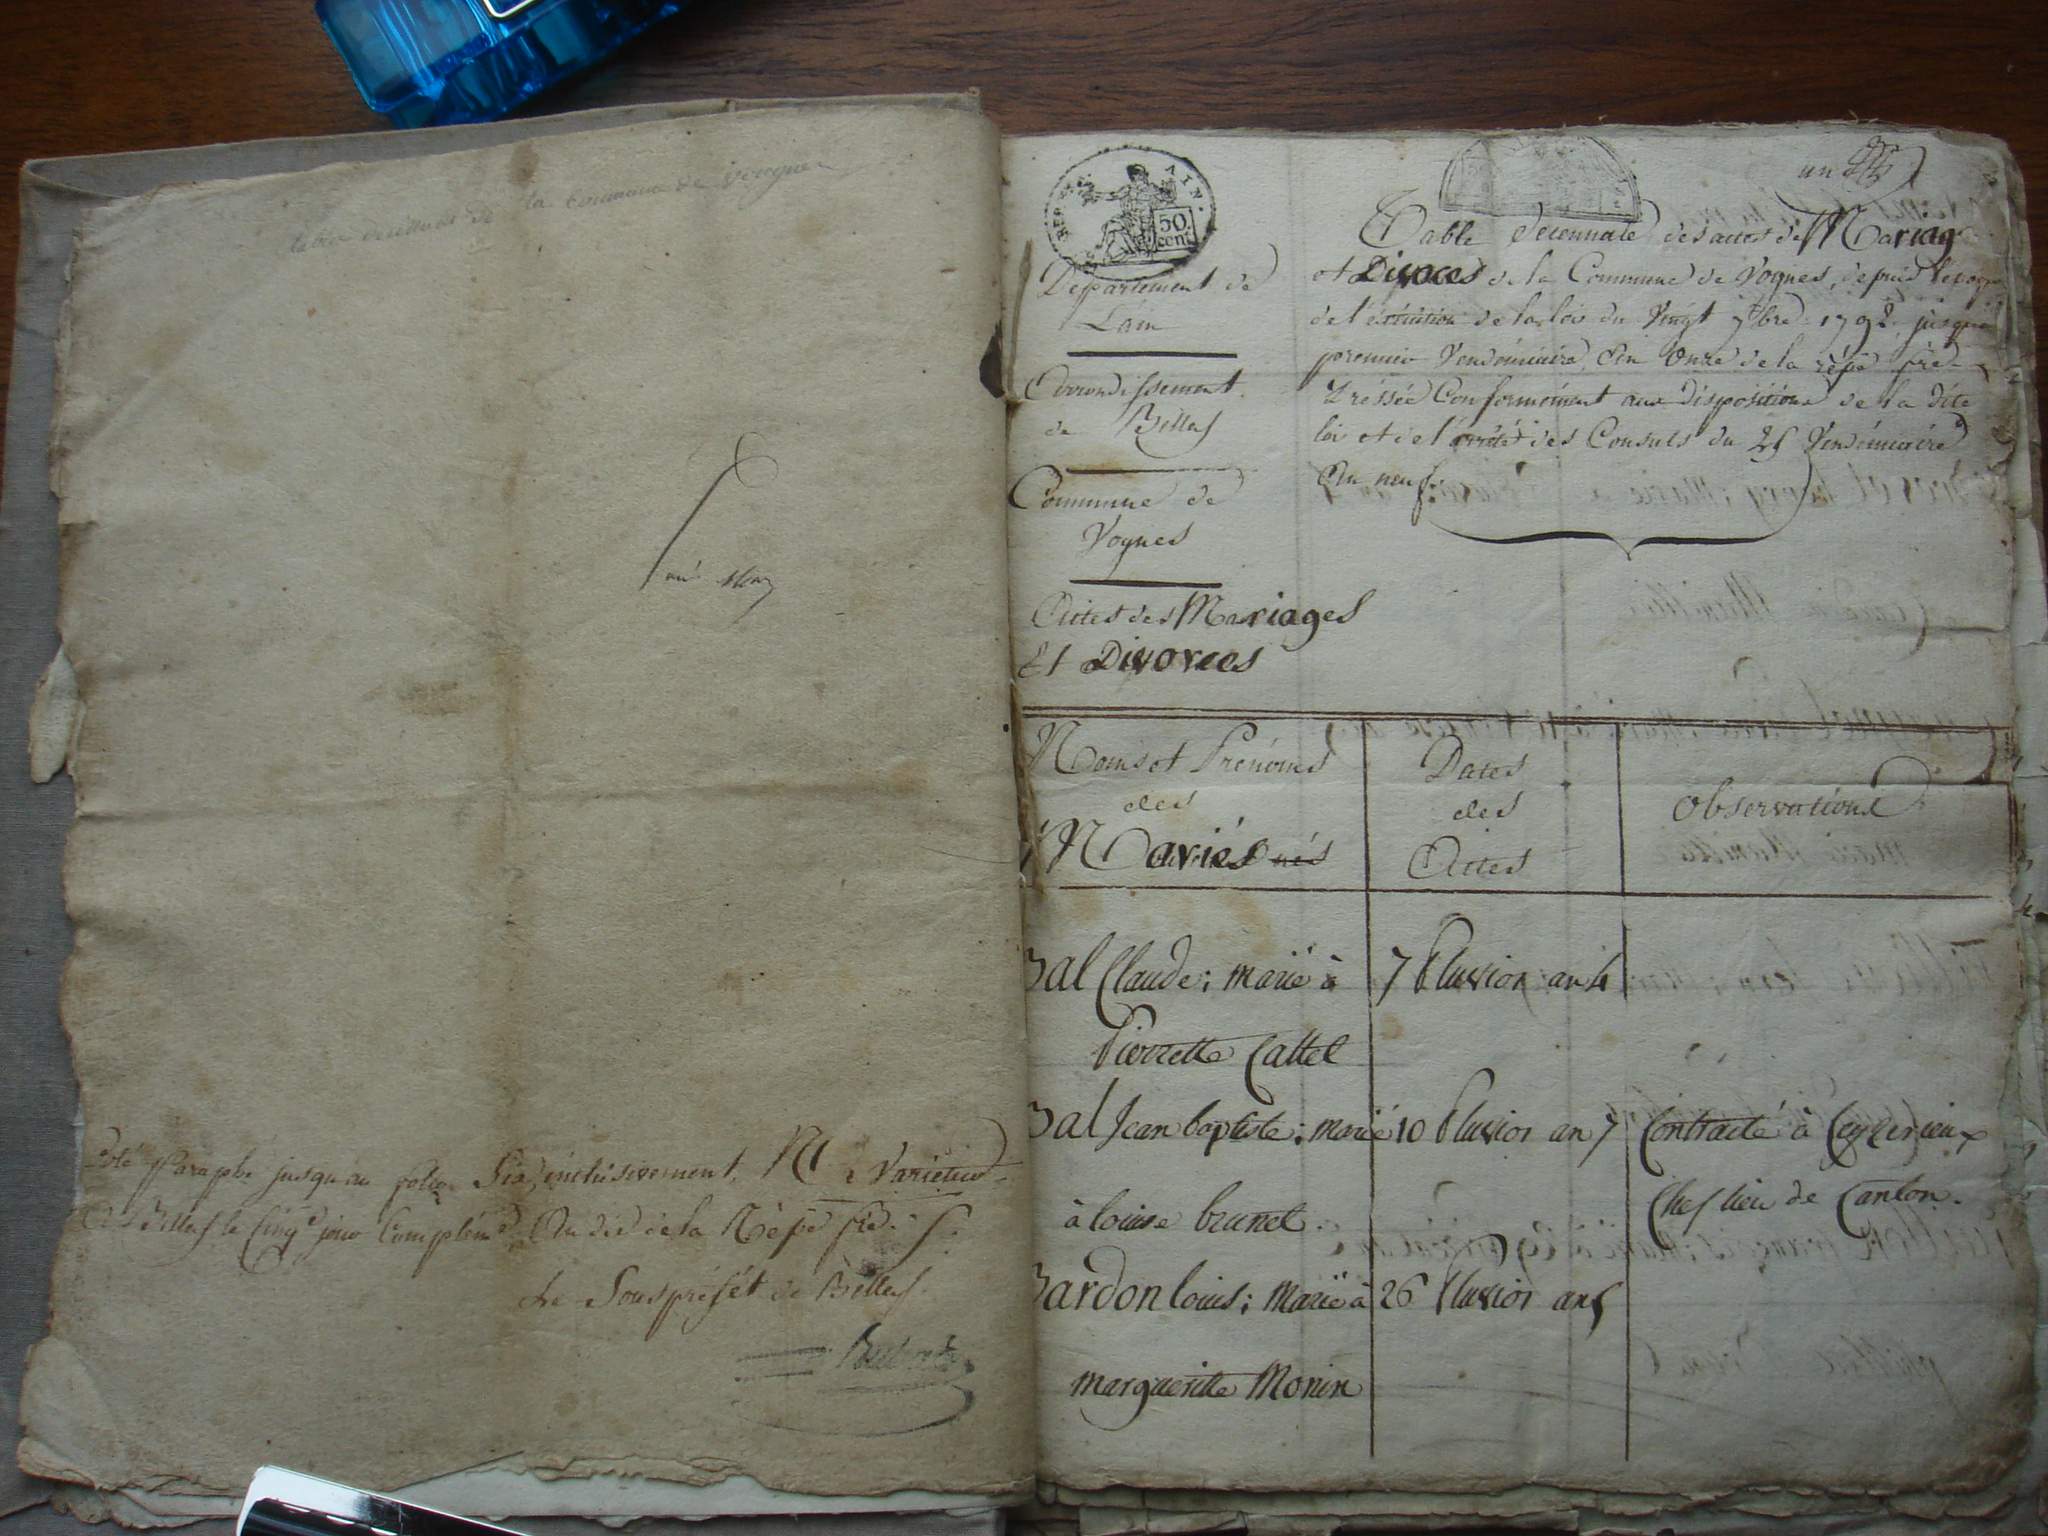 tables décennales de la Commune de vongnes
né Mon
Coté Paraphé jusqu'au folio Six, inclusivement, Ne Varietur
A Billes le Cinq.e jour Complém.e An dix de la Rèpe fse.
Le Souspréfét de Billes.
REP. FRA. AIN.
50 cent.
un
Département de
Lain
Arrondissement
de Billes
Commune de
Vognes
Actes des Mariages
Et Divorces
Table Décennale des actes de Mariag
et Divoces de la Commune de Vognes, depuis lepoque
de l'exécution de la loi du Vingt 7bre 1792 jusqu'au
premier Vendémiaire, An Onze de la rèpe frse
Dréssée Conformément aux dispositions de la dite
loi et de l'arrêté des Consuls du 25 Vendémiaire
An neuf.
Noms et Prénoms
des
Mariés nés
Dates
des
Actes
Observations
Bal Claude; marié à
7 Pluvios an 4
Pierrette Cattel
Bal Jean baptiste; marié
10 Pluvios an 7
Contracté à Ceyzerieux
à louise brunet.
Chef lieu de Canton.
Bardon louis; Marié à
26 Pluvios an 5
margueritte Monin